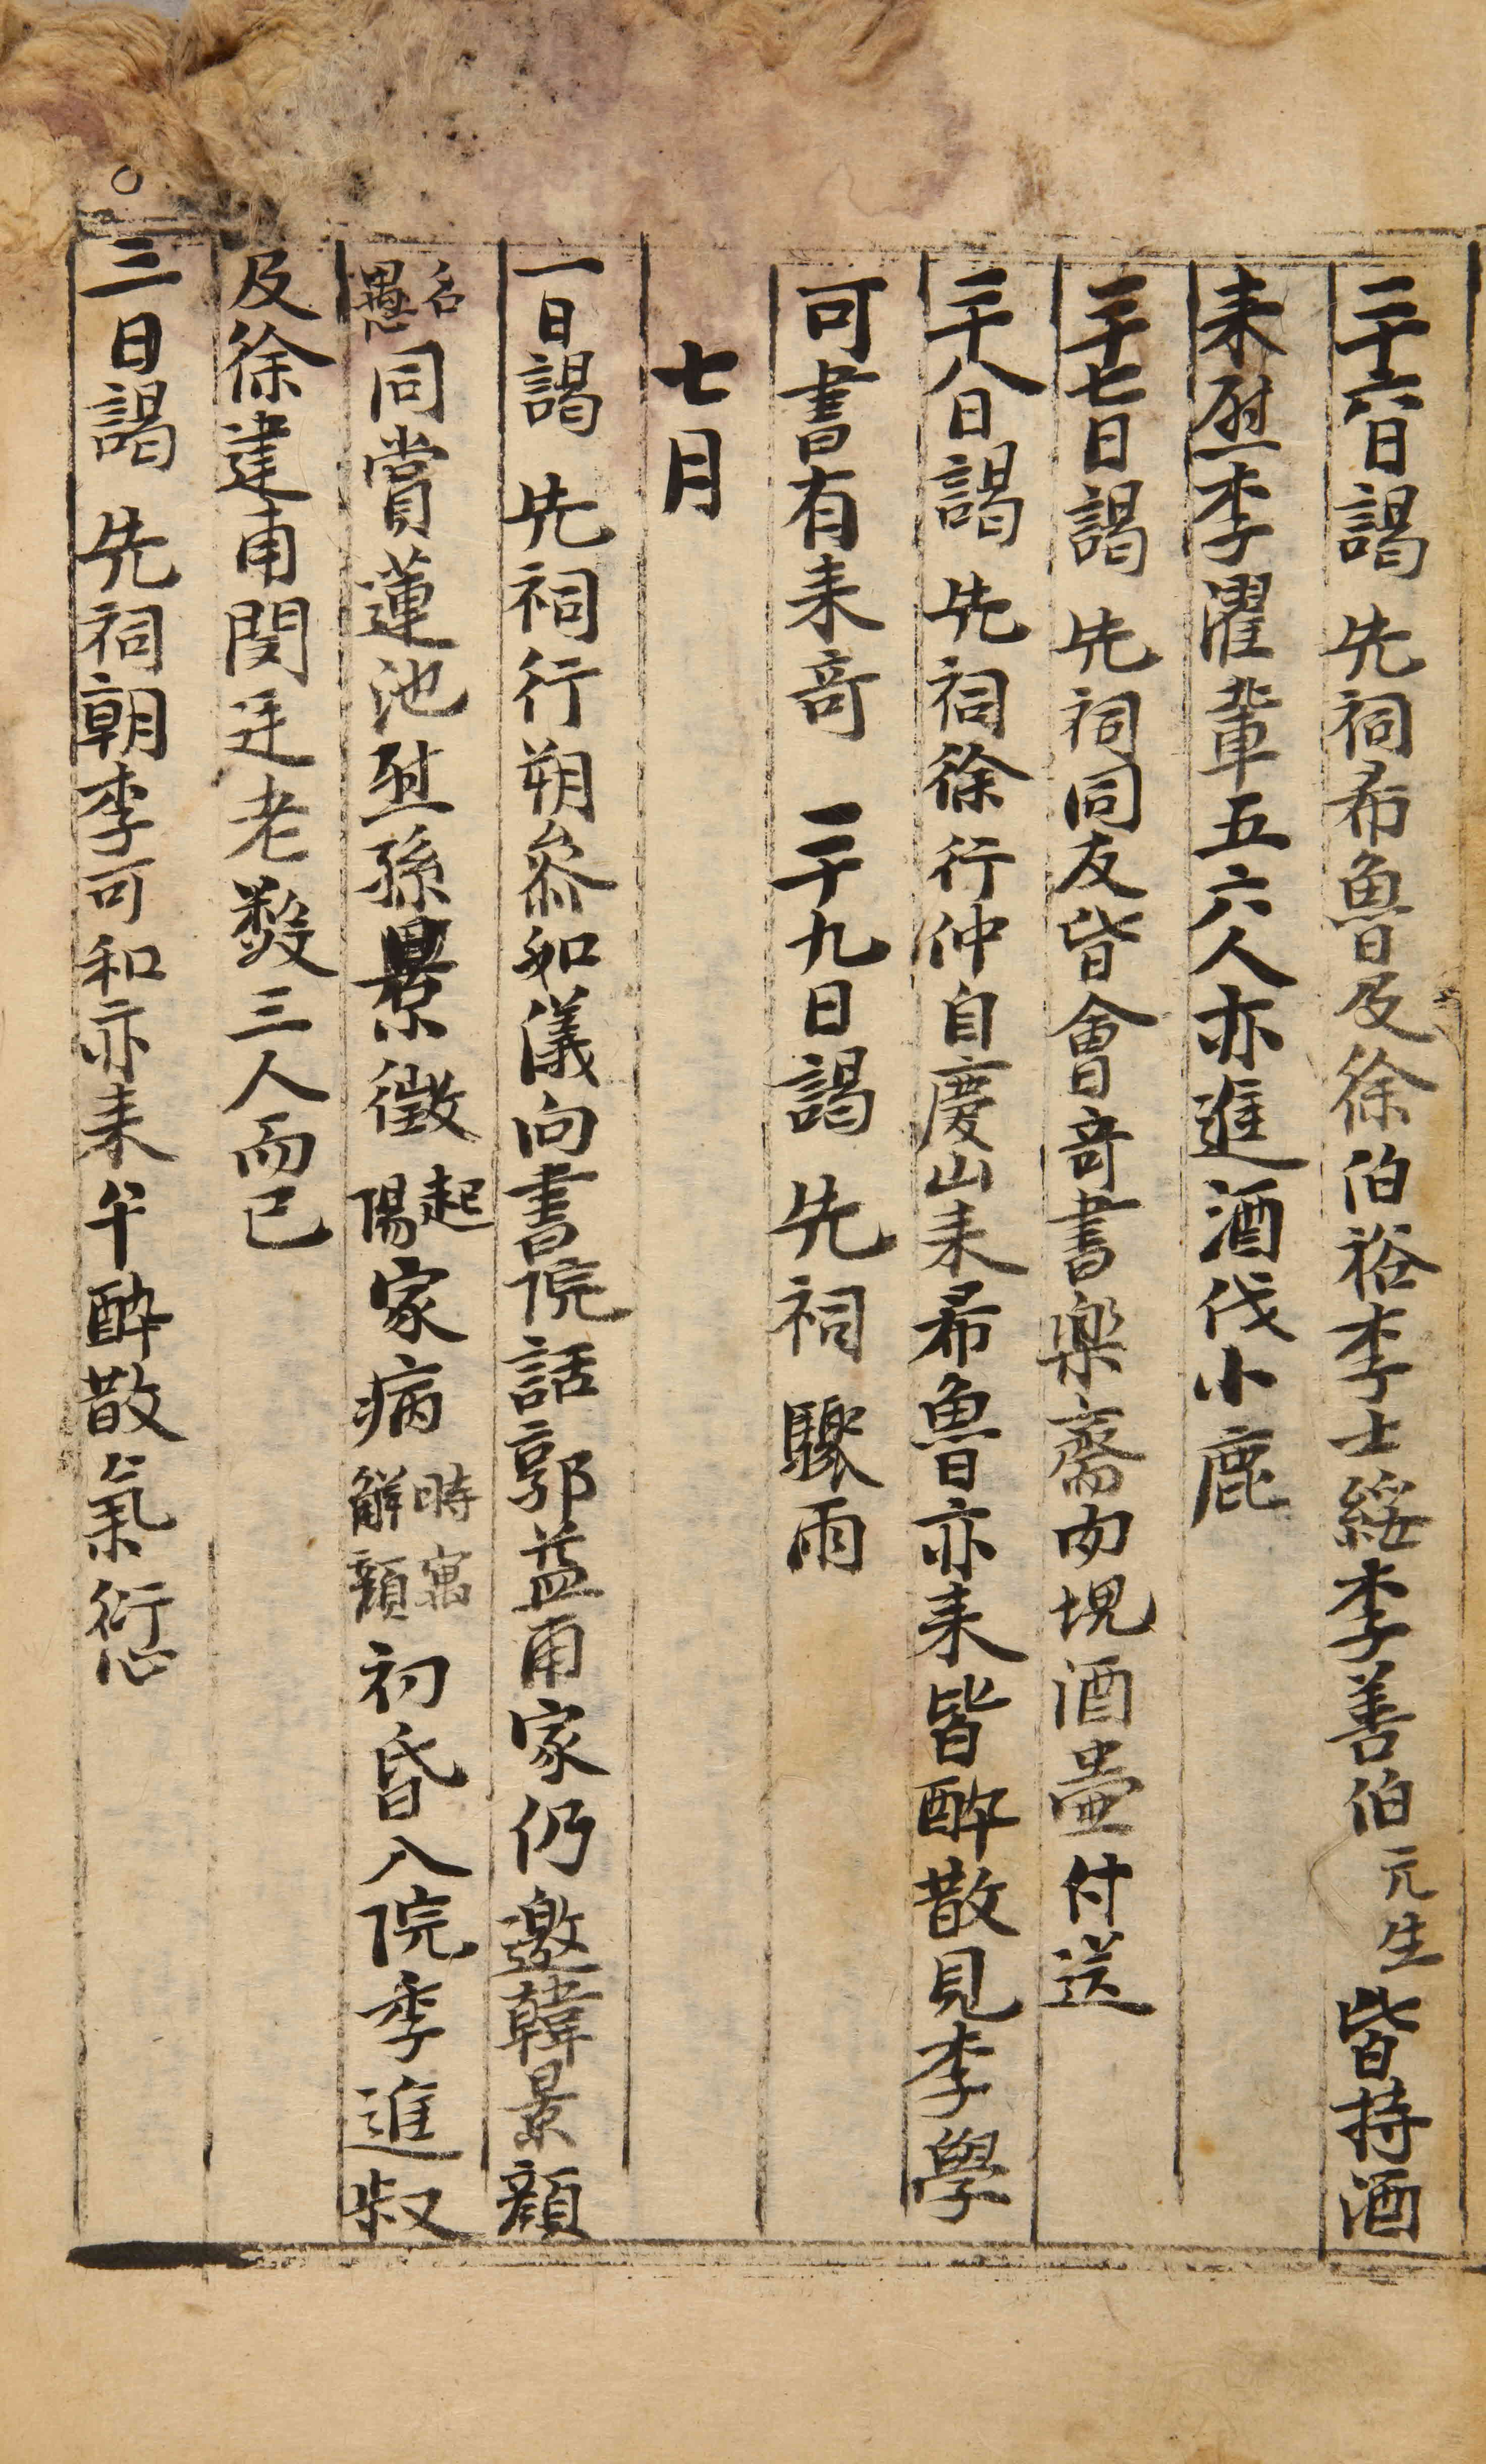 二十六日謁 先祠希魯及徐伯裕李士綏李善伯元生皆持酒
来慰李濯輩五六人亦進酒伐小鹿
二十七日謁 先祠同友皆會竒書樂齋內堄酒壷付送
二十八日謁 先祠徐行仲自慶山来希魯亦来皆醉散見李學
可書有来竒 二十九日謁 先祠 驟雨
七月
一日謁 先祠行朔叅如儀向書院話郭益甫家仍邀韓景顔
名愚同賞蓮池慰孫景徵起陽家病時寓觧顔初昏入院季進叔
及徐建甫閔廷老數三人而已
三日謁 先祠朝李可和亦来午醉散氣愆